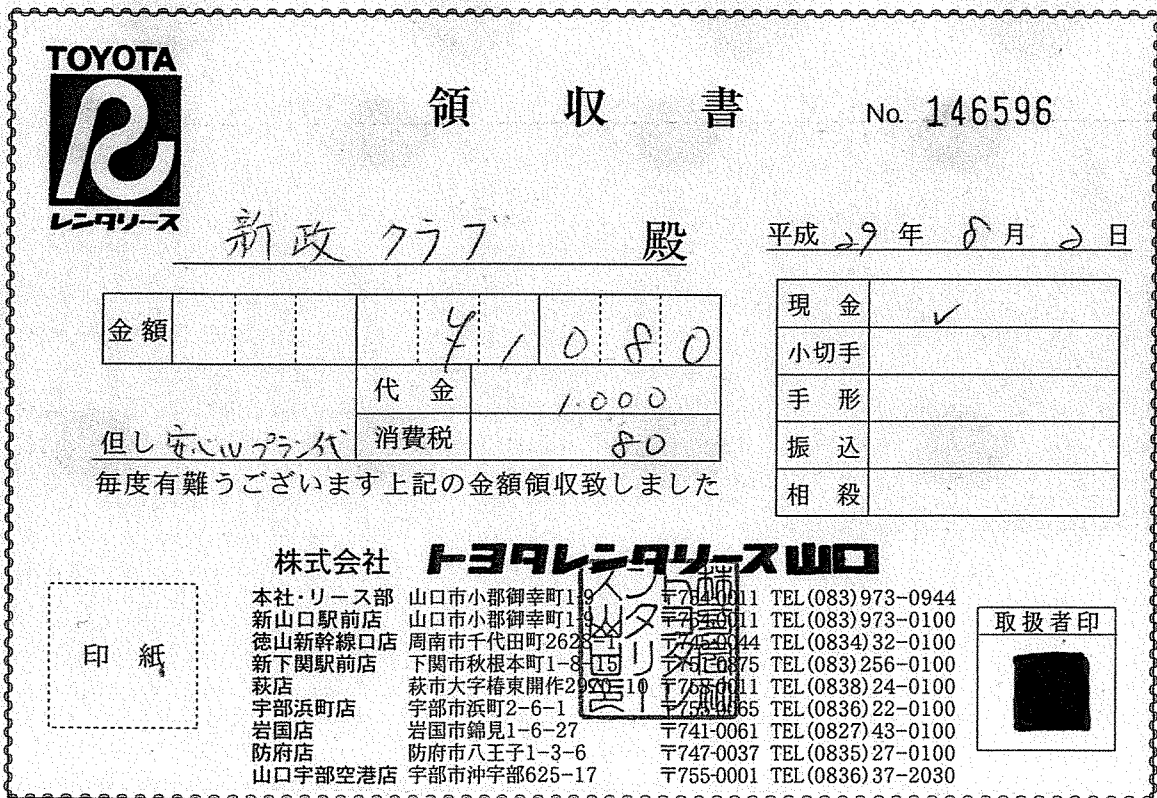 TOYOTA
レンタリース
領収書
No. 146596
新政クラブ 殿
平成 29 年 8 月 2 日
金額 ¥1080
代金 1.000
消費税 80
但し 安心Wプラン代
毎度有難うございます上記の金額領収致しました
現金 ✓
小切手
手形
振込
相殺
株式会社 トヨタレンタリース山口
本社・リース部 山口市小郡御幸町1-9 〒754-0011 TEL(083)973-0944
新山口駅前店 山口市小郡御幸町1-9 〒754-0011 TEL(083)973-0100
徳山新幹線口店 周南市千代田町2628-1 〒745-0044 TEL(0834)32-0100
新下関駅前店 下関市秋根本町1-8-15 〒751-0875 TEL(083)256-0100
萩店 萩市大字椿東開作2970-10 〒758-0011 TEL(0838)24-0100
宇部浜町店 宇部市浜町2-6-1 〒755-0065 TEL(0836)22-0100
岩国店 岩国市錦見1-6-27 〒741-0061 TEL(0827)43-0100
防府店 防府市八王子1-3-6 〒747-0037 TEL(0835)27-0100
山口宇部空港店 宇部市沖宇部625-17 〒755-0001 TEL(0836)37-2030
印紙
取扱者印